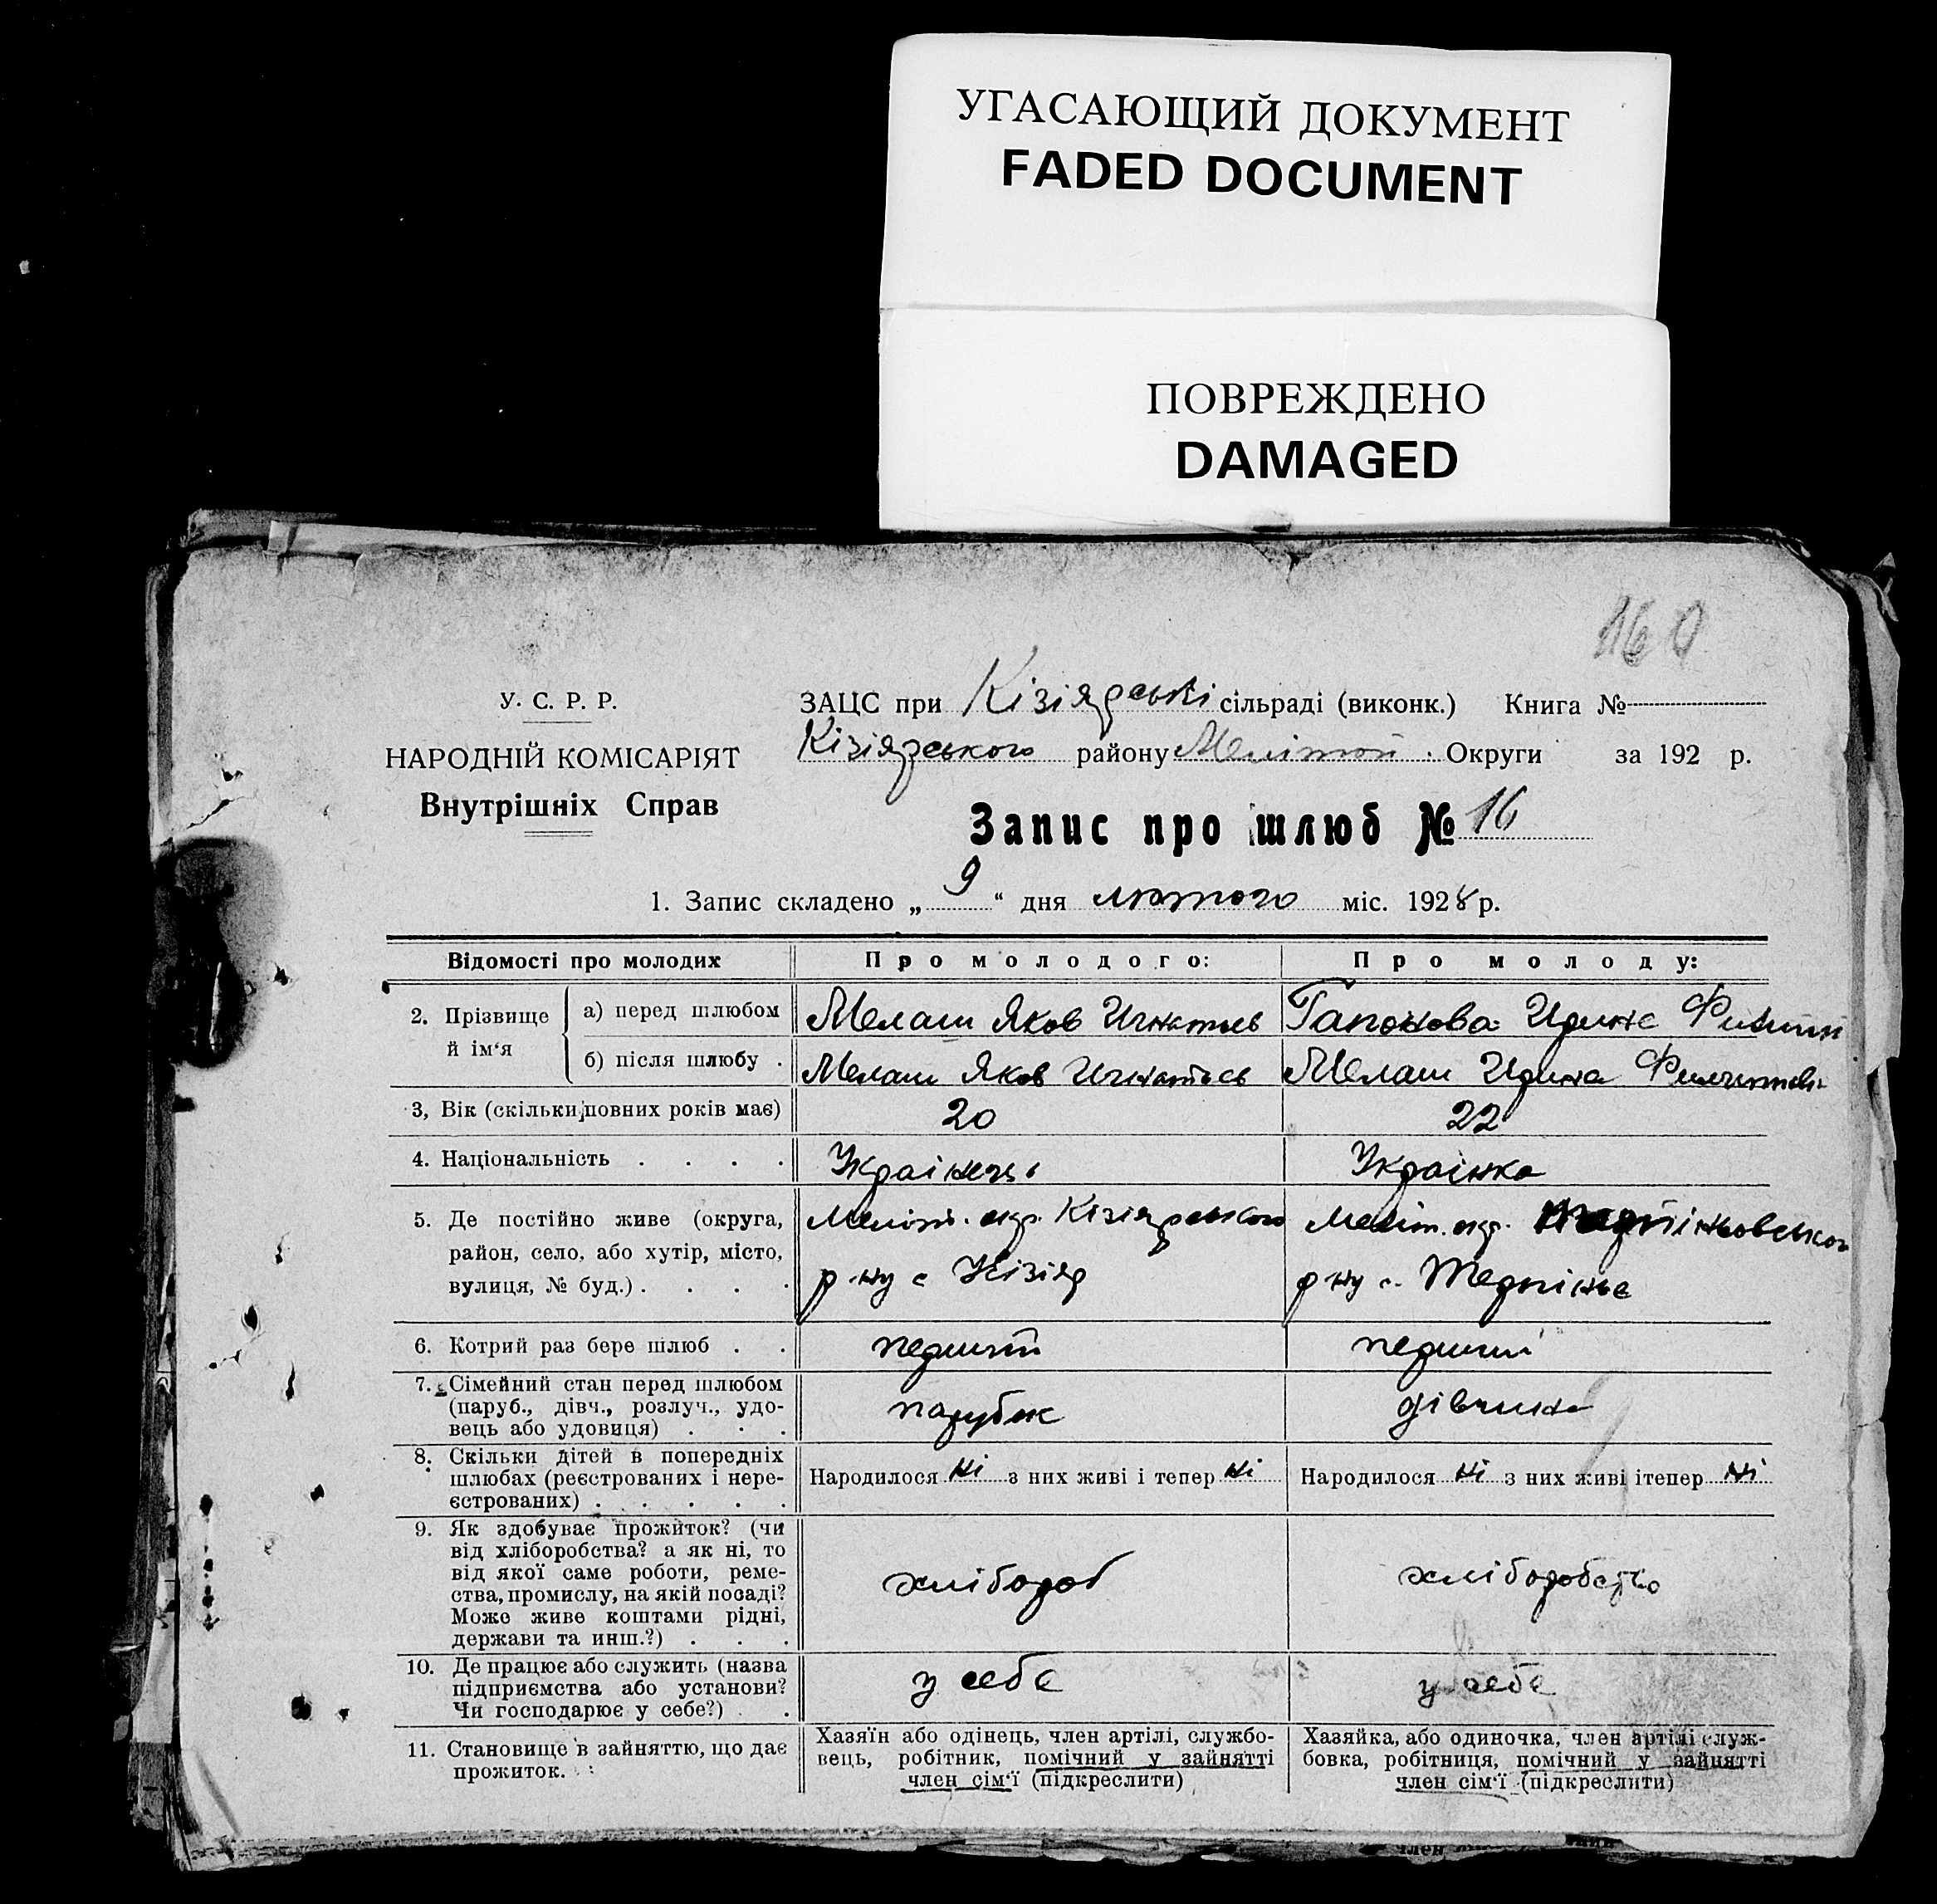 УГАСАЮЩИЙ ДОКУМЕНТ
FADED DOCUMENT
ПОВРЕЖДЕНО
DAMAGED
160
У. С. Р. Р.
НАРОДНІЙ КОМІСАРІЯТ
Внутрішніх Справ
ЗАЦС при Кізіярські сільраді (виконк.) Книга №
Кізіярського району Меліт Округи за 192 р.
Запис про шлюб № 16
1. Запис складено „9“ дня лютого міс. 1928 р.
Відомості про молодих Про молодого: Про молоду:
2. Прізвище й ім‘я
а) перед шлюбом Мелаш Яков Игнатьев Гапонова Ирина Филип
б) після шлюбу . Мелаш Яков Игнатьев Мелаш Ирина
3, Вік (скільки повних років має) 20 22
4. Національність . . . . Українець Українка
5. Де постійно живе (округа,
район, село, або хутір, місто,
вулиця, № буд.) . . . .
Меліт. окр. Кізіярського
р-ну с Кізіяр
Меліт. окр. Терпіньовського
р-ну с. Терпіньє
6. Котрий раз бере шлюб . . перший перший
7. Сімейний стан перед шлюбом
(паруб., дівч., розлуч., удо-
вець або удовиця) . . .
парубок дівчина
8. Скільки дітей в попередніх
шлюбах (реєстрованих і нере-
єстрованих) . . . . .
Народилося ні з них живі і тепер ні Народилося ні з них живі ітепер ні
9. Як здобуває прожиток? (чи
від хліборобства? а як ні, то
від якої саме роботи, реме-
ства, промислу, на якій посаді?
Може живе коштами рідні,
держави та инш.?) . . .
хлібороб хліборобство
10. Де працює або служить (назва
підприємства або установи?
Чи господарює у себе?) .
у себе у себе
11. Становище в зайняттю, що дає
прожиток.
Хазяїн або одінець, член артілі, службо-
вець, робітник, помічний у зайнятті
член сім‘ї (підкреслити)
Хазяйка, або одиночка, член артілі служ-
бовка, робітниця, помічний у зайнятті
член сім‘ї (підкреслити)
член